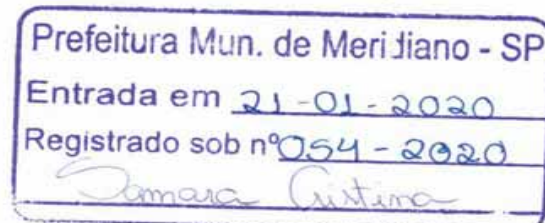 Prefeitura Mun. de Meridiano - SP
Entrada em 21-01-2020
Registrado sob nº 054 - 2020
Samara Cristina